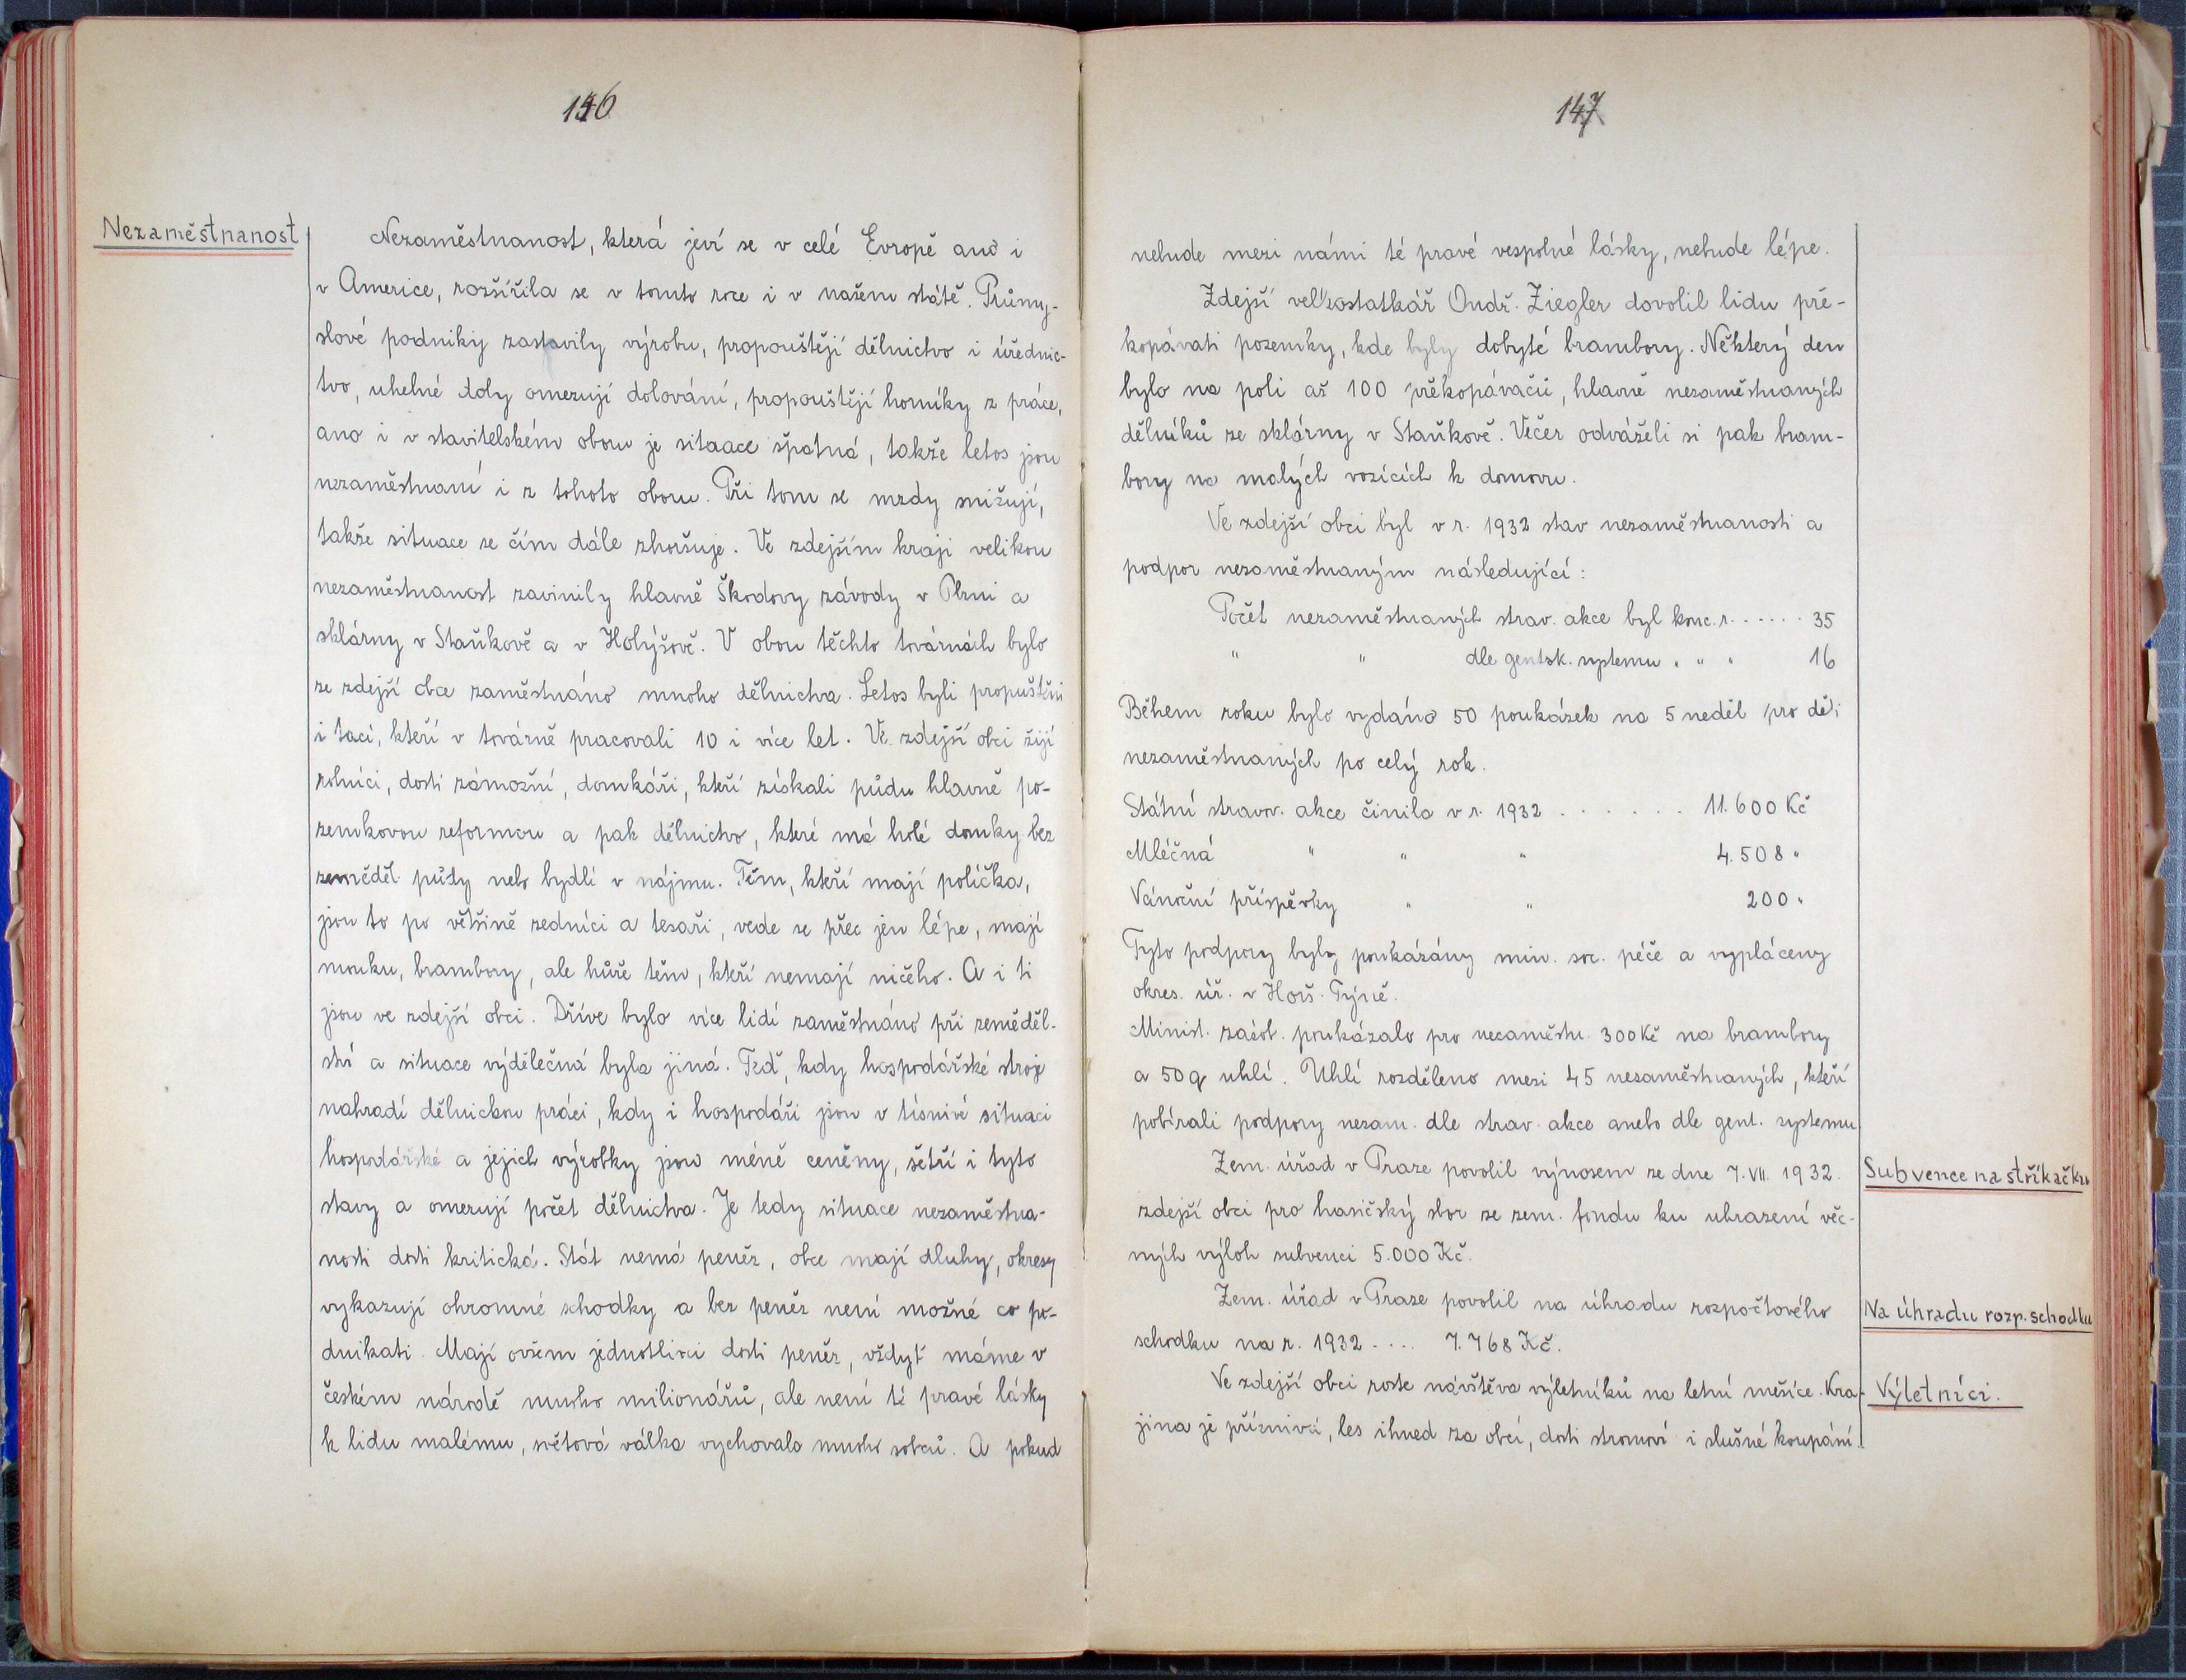 146
Nezaměstnanost
Nezaměstnanost, která jeví se v celé Evropě ano i
v Americe, rozšířila se v tomto roce i v našem státě. Průmy-
slové podniky zastavily výrobu, propouštějí dělnictvo i úřednic-
tvo, uhelné doly omezují dolování, propouštějí horníky z práce,
ano i v stavitelském oboru je sitaace špatná, takže letos jsou
nezaměstnaní i z tohoto oboru. Při tom se mzdy snižují,
takže situace se čím dále zhoršuje. Ve zdejším kraji velikou
nezaměstnanost zavinily hlavně Škodovy závody v Plzni a
sklárny v Staňkově a v Holýšově. V obou těchto továrnách bylo
ze zdejší obce zaměstnáno mnoho dělnictva. Letos byli propuštěni
i tací, kteří v továrně pracovali 10 i více let. Ve zdejší obci žijí
rolníci, dosti zámožní, domkáři, kteří získali půdu hlavně po-
zemkovou reformou a pak dělnictvo, které má holé domky bez
zeměděl. půdy nebo bydlí v nájmu. Těm, kteří mají políčka,
jsou to po většině zedníci a tesaři, vede se přec jen lépe, mají
mouku, brambory, ale hůře těm, kteří nemají ničeho. A i ti
jsou ve zdejší obci. Dříve bylo více lidí zaměstnáno při zeměděl-
ství a situace výdělečná byla jiná. Teď, kdy hospodářské stroje
nahradí dělnickou práci, kdy i hospodáři jsou v tísnivé situaci
hospodářské a jejich výrobky jsou méně ceněny, šetří i tyto
stavy a omezují počet dělnictva. Je tedy situace nezaměstna-
nosti dosti kritická. Stát nemá peněz, obce mají dluhy, okresy
vykazují ohromné schodky a bez peněz není možné co po-
dnikati. Mají ovšem jednotlivci dosti peněz, vždyť máme v
českém národě mnoho milionářů, ale není té pravé lásky
k lidu malému, světová válka vychovala mnoho sobců. A pokud
147
nebude mezi námi té pravé vespolné lásky, nebude lépe.
Zdejší velkostatkář Ondř. Ziegler dovolil lidu pře-
kopávati pozemky, kde byly dobyté brambory. Některý den
bylo na poli až 100 překopávačů, hlavně nezaměstnaných
dělníků ze sklárny v Staňkově. Večer odváželi si pak bram-
bory na malých vozících k domovu.
Ve zdejší obci byl v r. 1932 stav nezaměstnanosti a
podpor nezaměstnaným následující:
Počet nezaměstnaných strav. akce byl konc. r. . . . . . 35
" " dle gentsk. systemu " " " 16
Během roku bylo vydáno 50 poukázek na 5 neděl pro děti
nezaměstnaných po celý rok.
Státní stravov. akce činila v r. 1932 . . . . . . 11.600 Kč
Mléčná " " " 4.508 "
Vánoční příspěvky " " 200 "
Tyto podpory byly poukázány min. soc. péče a vypláceny
okres. úř. v Horš. Týně.
Minist. zásob. poukázalo pro nezaměstn. 300 Kč na brambory
a 50 q uhlí. Uhlí rozděleno mezi 45 nezaměstnaných, kteří
pobírali podpory nezam. dle strav. akce anebo dle gent. systemu.
Zem. úřad v Praze povolil výnosem ze dne 7. VII. 1932.
Subvence na stříkačku
zdejší obci pro hasičský sbor ze zem. fondu ku uhrazení věc-
ných výloh subvenci 5.000 Kč.
Zem. úřad v Praze povolil na úhradu rozpočtového
Na úhradu rozp. schodku
schodku na r. 1932 . . . . 7.768 Kč.
Ve zdejší obci roste návštěva výletníků na letní měsíce. Kra-
Výletníci.
jina je příznivá, les ihned za obcí, dosti stromoví i slušné koupání.